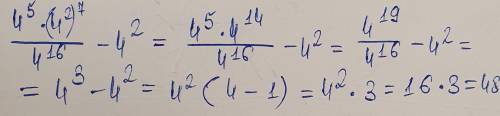 \frac{4^5 \cdot (4^2)^7}{4^{16}} - 4^2 = \frac{4^5 \cdot 4^{14}}{4^{16}} - 4^2 = \frac{4^{19}}{4^{16}} - 4^2 =
= 4^3 - 4^2 = 4^2 (4 - 1) = 4^2 \cdot 3 = 16 \cdot 3 = 48